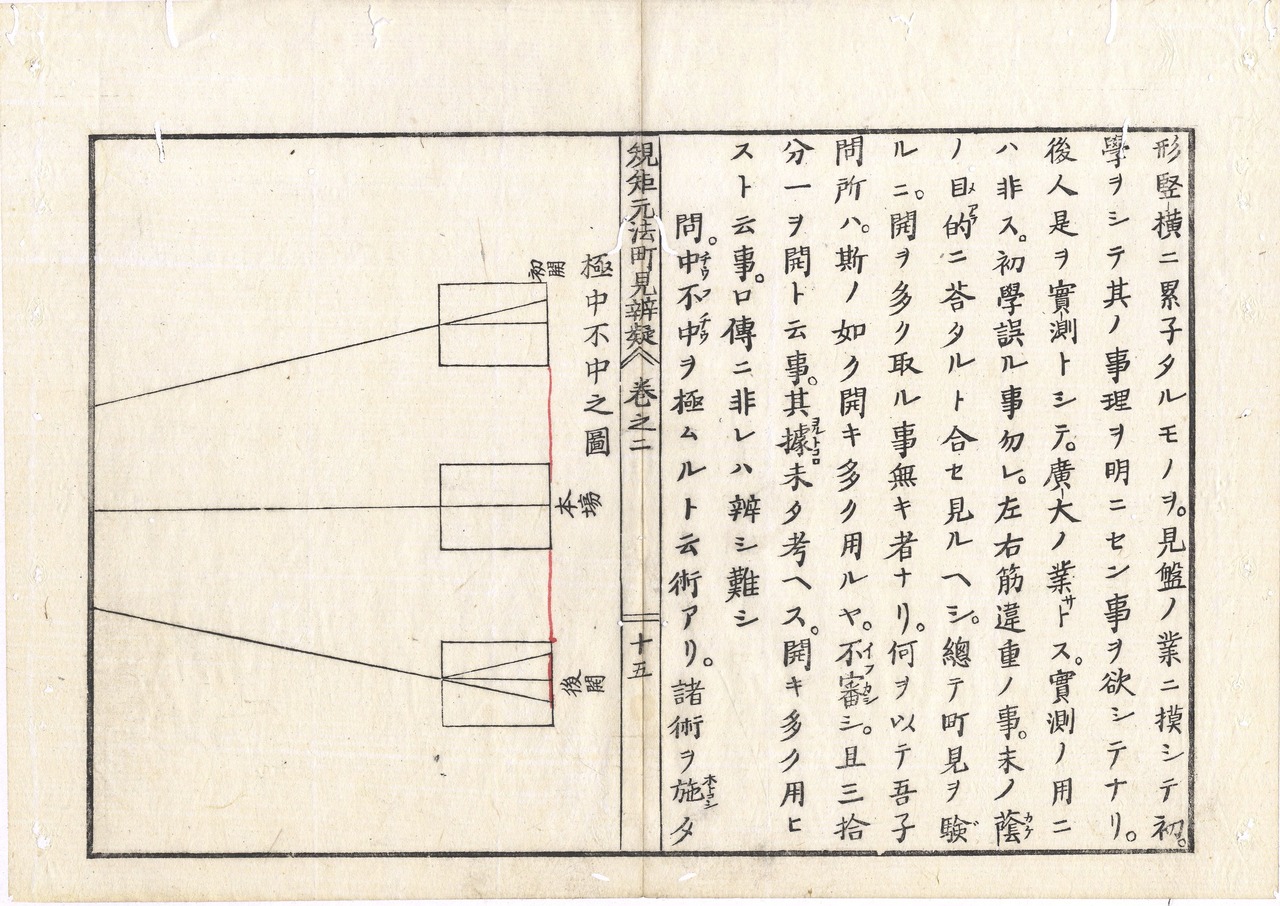 形竪横ニ累子タルモノヲ。見盤ノ業ニ摸シテ初。
學ヲシテ其ノ事理ヲ明ニセン事ヲ欲シテナリ。
後人是ヲ實測トシテ。廣大ノ業トス。實測ノ用ニ
ハ非ス。初學誤ル事勿レ。左右筋違重ノ事。未ノ蔭
ノ目的ニ荅タルト合セ見ルヘシ。總テ町見ヲ驗
ルニ。開ヲ多ク取ル事無キ者ナリ。何ヲ以テ吾子
問所ハ。斯ノ如ク開キ多ク用ルヤ。不審シ。且三拾
分一ヲ開ト云事。其據未タ考ヘス。開キ多ク用ヒ
スト云事。口傳ニ非レハ辨シ難シ
問。中不中ヲ極ムルト云術アリ。諸術ヲ施タ
規矩元法町見辨疑 卷之二 十五
極中不中之圖
初開
本場
後開